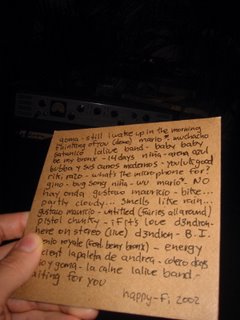 goma - still i wake up in the morning
thinking of you (demo) mario* muchacho
galanico lalive band - baby baby
be my bronx - 14 days niña - arena azul
bisbra y sus carros modernos - you look good
riki rizo - what's the microphone for?
gino - bug song niña - wu mario* NO
hay onda gustavo mauricio - bike...
partly cloudy... smells like rain...
gustavo mauricio - untitled (fairies all around)
pistol chunky - if it's love d3ndron -
here on stereo (live) d3ndron - B.I.
royale (feat. bemy bronx) - energy
la paleta de andrea - ocero dias
y goma - la calne lalive band -
waiting for you
happy-fi 2002